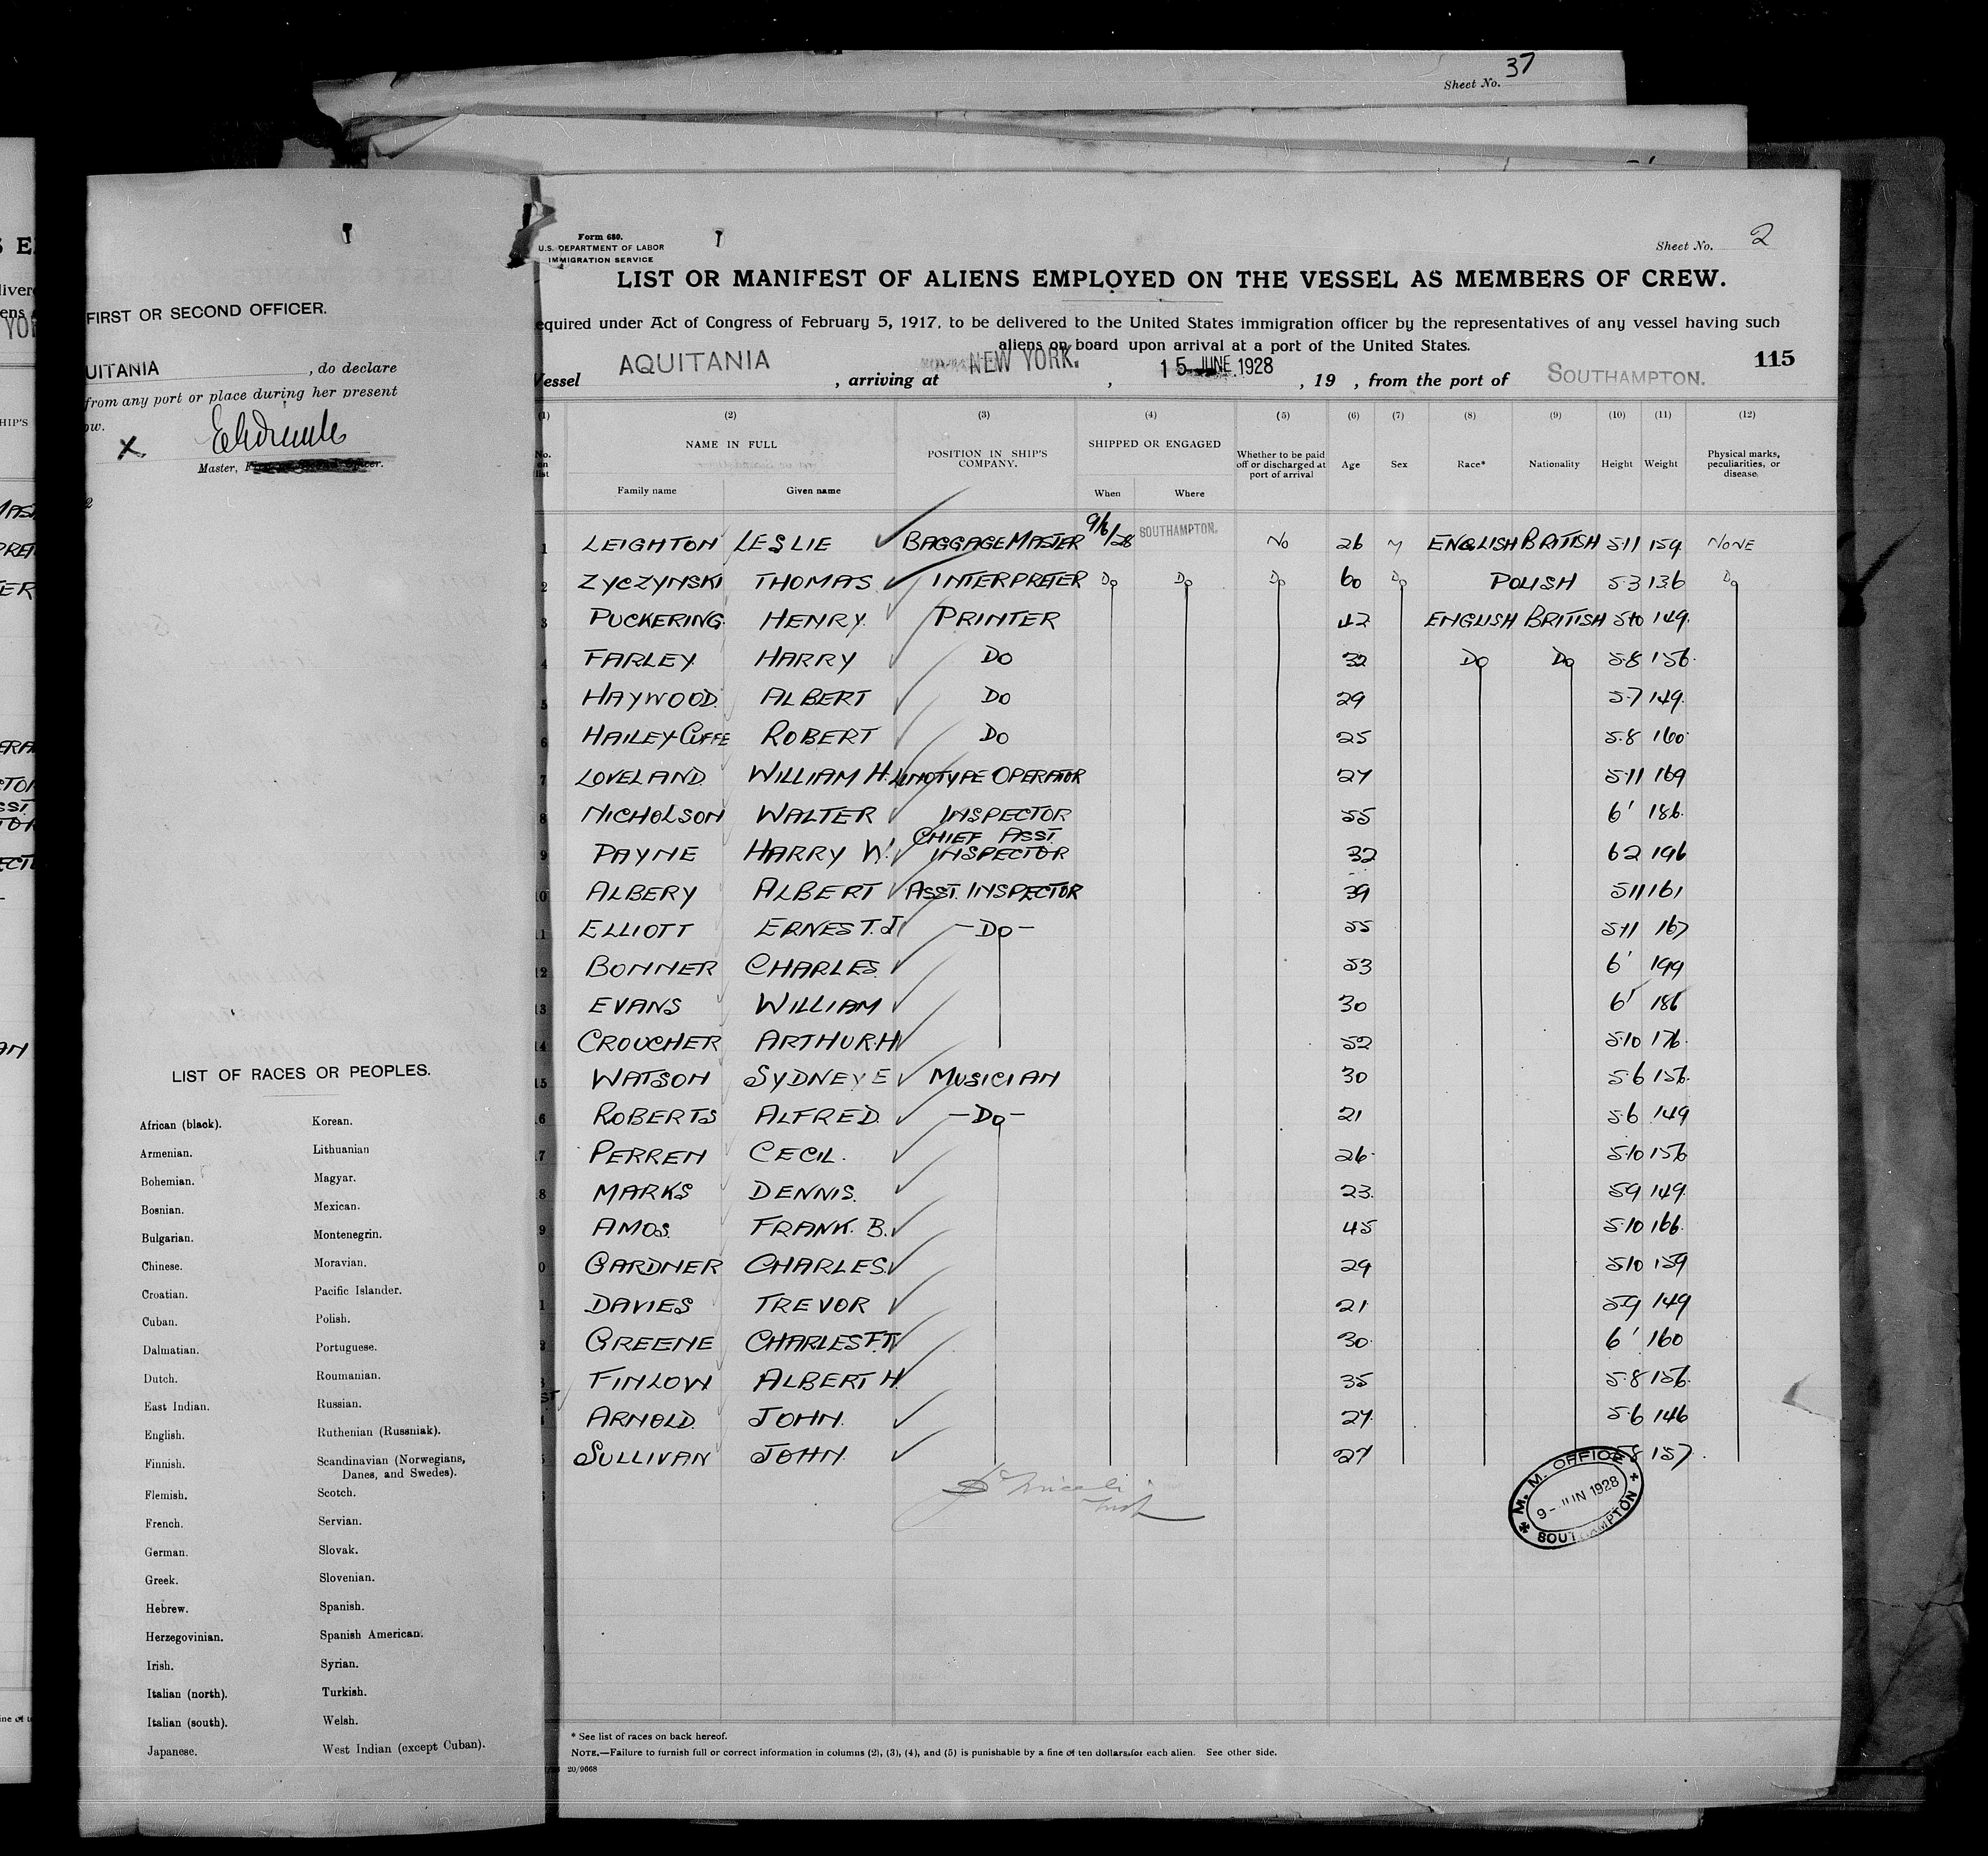 Sheet No. 37
Form 680.
U.S. DEPARTMENT OF LABOR
IMMIGRATION SERVICE
Sheet No. 2
LIST OR MANIFEST OF ALIENS EMPLOYED ON THE VESSEL AS MEMBERS OF CREW.
equired under Act of Congress of February 5, 1917, to be delivered to the United States immigration officer by the representatives of any vessel having such
aliens on board upon arrival at a port of the United States.
Vessel AQUITANIA, arriving at NEW YORK., 15 JUNE 1928, 19 , from the port of SOUTHAMPTON. 115
FIRST OR SECOND OFFICER.
UITANIA, do declare
from any port or place during her present
ow.
X
Master, First or Second Officer.
(1) (2) (3) (4) (5) (6) (7) (8) (9) (10) (11) (12)
No. on list NAME IN FULL POSITION IN SHIP'S COMPANY. SHIPPED OR ENGAGED Whether to be paid off or discharged at port of arrival Age Sex Race* Nationality Height Weight Physical marks, peculiarities, or disease.
Family name Given name When Where
1 LEIGHTON LESLIE BAGGAGE MASTER 9/6/28 SOUTHAMPTON. NO 26 M ENGLISH BRITISH 5·11 159 NONE
2 ZYCZYNSKI THOMAS INTERPRETER Do Do Do 60 Do POLISH 5·3 136 Do
3 PUCKERING HENRY PRINTER 42 ENGLISH BRITISH 5·10 149
4 FARLEY HARRY DO 32 Do Do 5·8 156
5 HAYWOOD ALBERT DO 29 5·7 149
6 HAILEY-CUFFE ROBERT DO 25 5·8 160
7 LOVELAND WILLIAM H. LINOTYPE OPERATOR 27 5·11 169
8 NICHOLSON WALTER INSPECTOR 55 6' 186
9 PAYNE HARRY W. CHIEF ASST. INSPECTOR 32 6 2 196
10 ALBERY ALBERT ASST. INSPECTOR 39 5 11 161
11 ELLIOTT ERNEST. J —Do— 55 5·11 167
12 BONNER CHARLES 53 6' 199
13 EVANS WILLIAM 30 6' 186
14 CROUCHER ARTHUR.H 52 5·10 176
15 WATSON SYDNEY E MUSICIAN 30 5·6 156
6 ROBERTS ALFRED. —Do— 21 5·6 149
7 PERREN CECIL. 26 5·10 156
8 MARKS DENNIS. 23 5 9 149
9 AMOS. FRANK. B. 45 5·10 166
0 GARDNER CHARLES. 29 5·10 159
1 DAVIES TREVOR 21 5·9 149
2 GREENE CHARLES F.T. 30 6' 160
3 FINLOW ALBERT H. 35 5·8 156
4 ARNOLD. JOHN. 27 5·6 146
5 SULLIVAN JOHN. 27 5 8 157
M. M. OFFICE
9 - JUN 1928
SOUTHAMPTON
LIST OF RACES OR PEOPLES.
African (black). Korean.
Armenian. Lithuanian
Bohemian. Magyar.
Bosnian. Mexican.
Bulgarian. Montenegrin.
Chinese. Moravian.
Croatian. Pacific Islander.
Cuban. Polish.
Dalmatian. Portuguese.
Dutch. Roumanian.
East Indian. Russian.
English. Ruthenian (Russniak).
Finnish. Scandinavian (Norwegians, Danes, and Swedes).
Flemish. Scotch.
French. Servian.
German. Slovak.
Greek. Slovenian.
Hebrew. Spanish.
Herzegovinian. Spanish American.
Irish. Syrian.
Italian (north). Turkish.
Italian (south). Welsh.
Japanese. West Indian (except Cuban).
* See list of races on back hereof.
NOTE.—Failure to furnish full or correct information in columns (2), (3), (4), and (5) is punishable by a fine of ten dollars for each alien. See other side.
20/9668